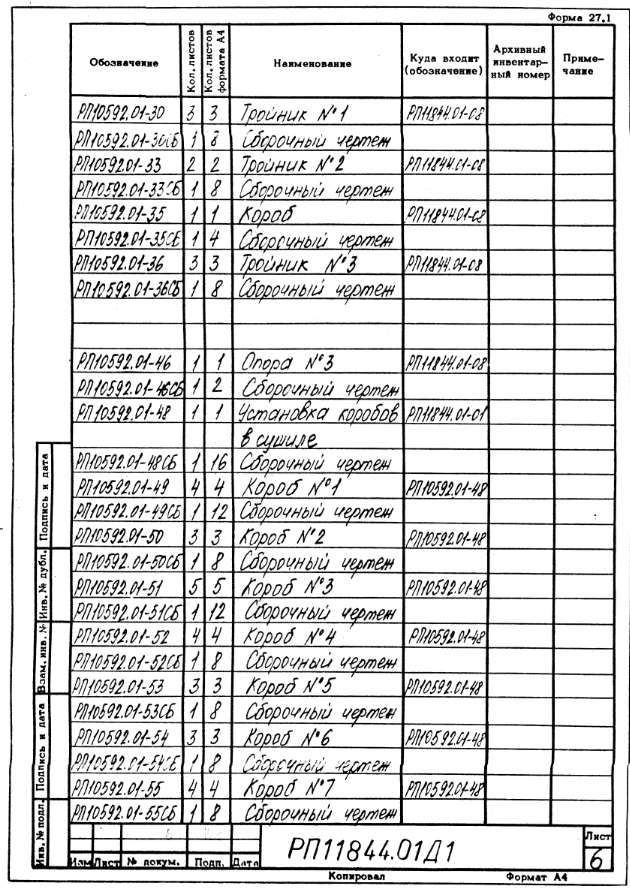 Форма 27.1
Обозначение Кол. листов Кол. листов формата А4 Наименование Куда входит (обозначение) Архивный инвентар- ный номер Приме- чание
РП10592.01-30 3 3 Тройник №1 РП11844.01-08
РП10592.01-30СБ 1 8 Сборочный чертеж
РП10592.01-33 2 2 Тройник №2 РП11844.01-08
РП10592.01-33СБ 1 8 Сборочный чертеж
РП10592.01-35 1 1 Короб РП11844.01-08
РП10592.01-35СБ 1 4 Сборочный чертеж
РП10592.01-36 3 3 Тройник №3 РП11844.01-08
РП10592.01-36СБ 1 8 Сборочный чертеж
РП10592.01-46 1 1 Опора №3 РП11844.01-08
РП10592.01-46СБ 1 2 Сборочный чертеж
РП10592.01-48 1 1 Установка коробов РП11844.01-01
в сушиле
РП10592.01-48СБ 1 16 Сборочный чертеж
РП10592.01-49 4 4 Короб №1 РП10592.01-48
РП10592.01-49СБ 1 12 Сборочный чертеж
РП10592.01-50 3 3 Короб №2 РП10592.01-48
РП10592.01-50СБ 1 8 Сборочный чертеж
РП10592.01-51 5 5 Короб №3 РП10592.01-48
РП10592.01-51СБ 1 12 Сборочный чертеж
РП10592.01-52 4 4 Короб №4 РП10592.01-48
РП10592.01-52СБ 1 8 Сборочный чертеж
РП10592.01-53 3 3 Короб №5 РП10592.01-48
РП10592.01-53СБ 1 8 Сборочный чертеж
РП10592.01-54 3 3 Короб №6 РП10592.01-48
РП10592.01-54СБ 1 8 Сборочный чертеж
РП10592.01-55 4 4 Короб №7 РП10592.01-48
РП10592.01-55СБ 1 8 Сборочный чертеж
Подпись и дата
Инв. № дубл.
Взам. инв. №
Подпись и дата
Инв. № подл.
Изм Лист № докум. Подп. Дата
РП11844.01Д1
Лист
6
Копировал Формат А4